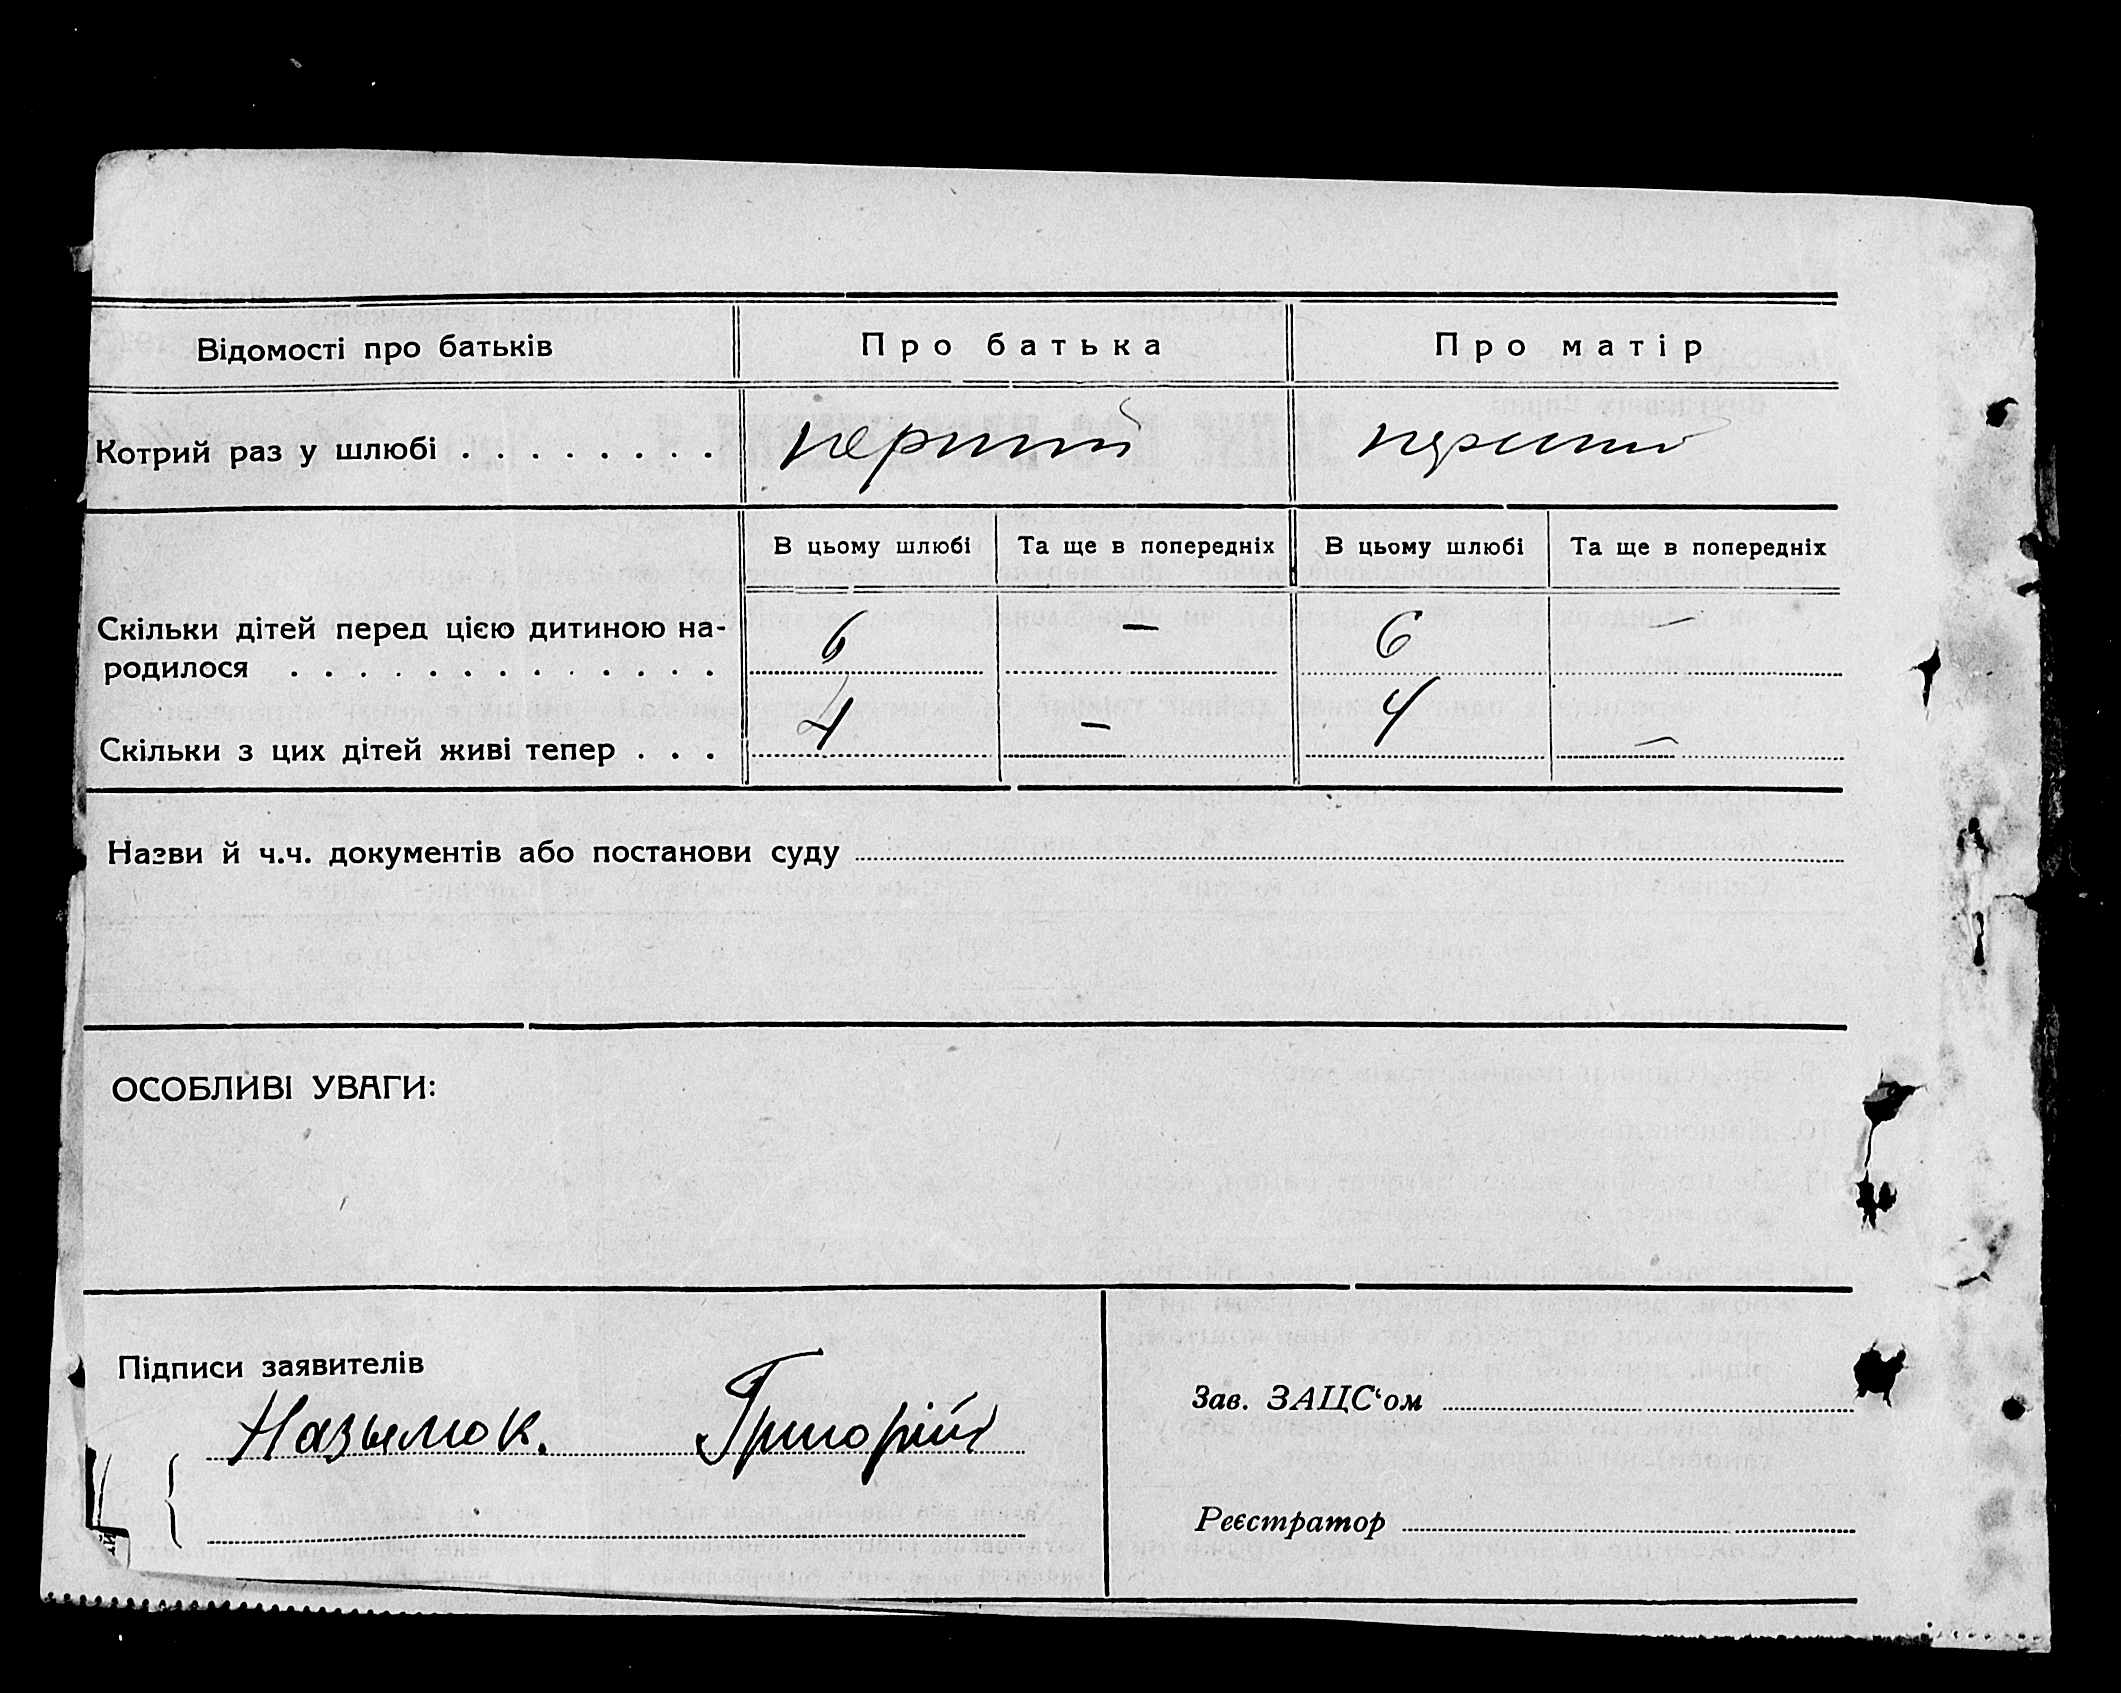 Відомості про батьків Про батька Про матір
Котрий раз у шлюбі . . . . . . . . перший перший
В цьому шлюбі Та ще в попередніх В цьому шлюбі Та ще в попередніх
Скільки дітей перед цією дитиною на-
родилося . . . . . . . . . . . . . 6 — 6 —
Скільки з цих дітей живі тепер . . . 4 — 4 —
Назви й ч.ч. документів або постанови суду
ОСОБЛИВІ УВАГИ:
Підписи заявителів
Назымок. Григорій
Зав. ЗАЦС‘ом
Реєстратор